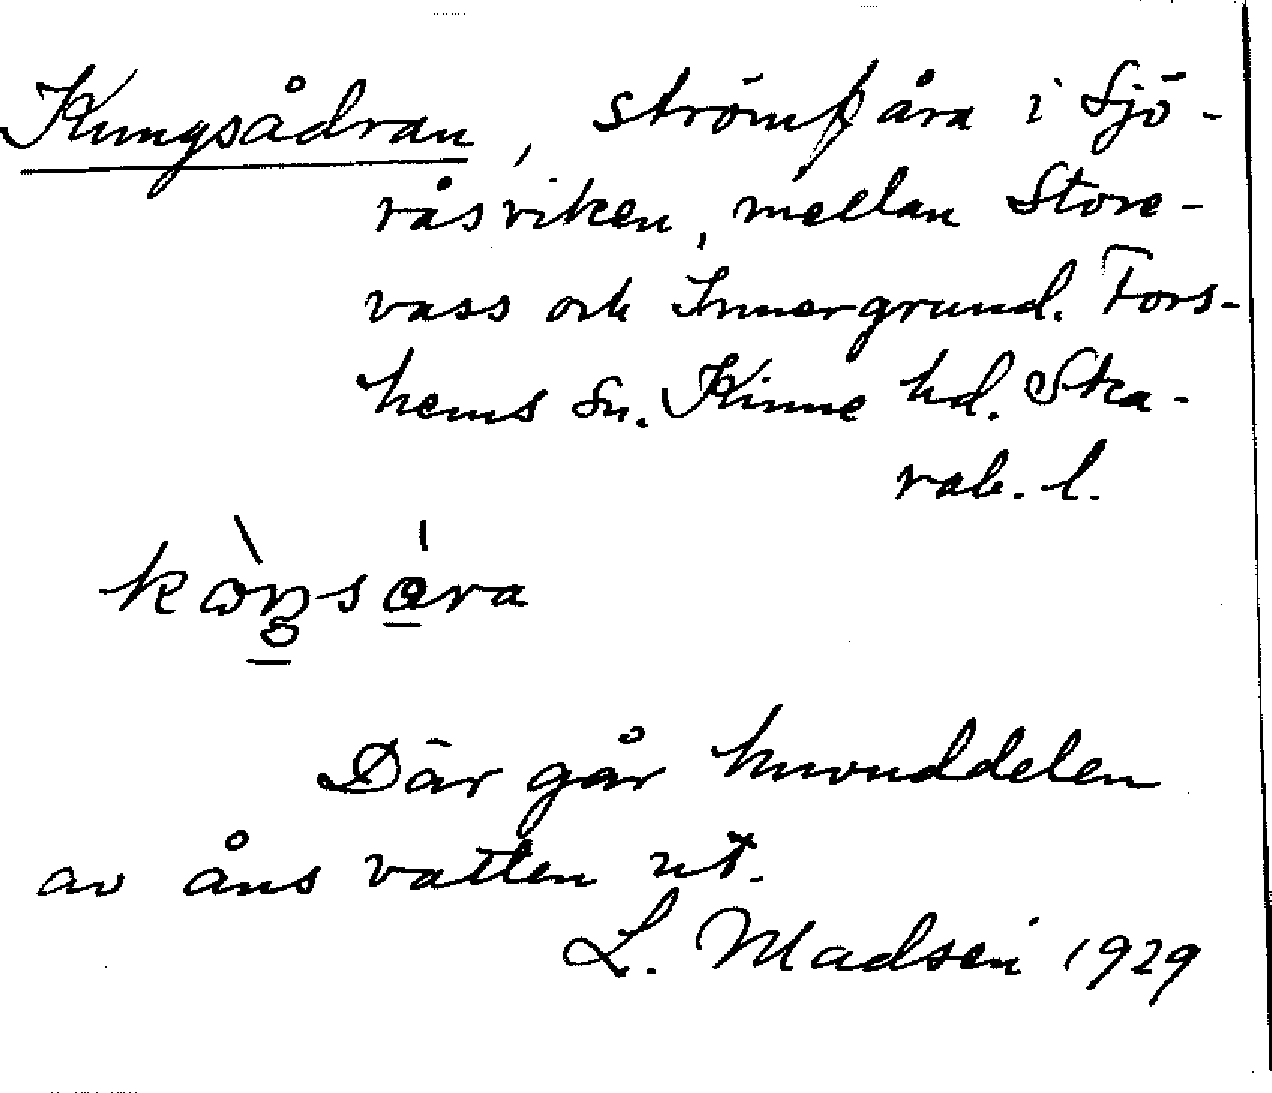 Kungsådran, strömfåra i Sjö-
råsviken, mellan Store-
vass och Innergrund. Fors-
hems sn. Kinne hd. Ska-
rab. l.
Där går huvuddelen
av åns vatten ut.
L. Madsén 1929